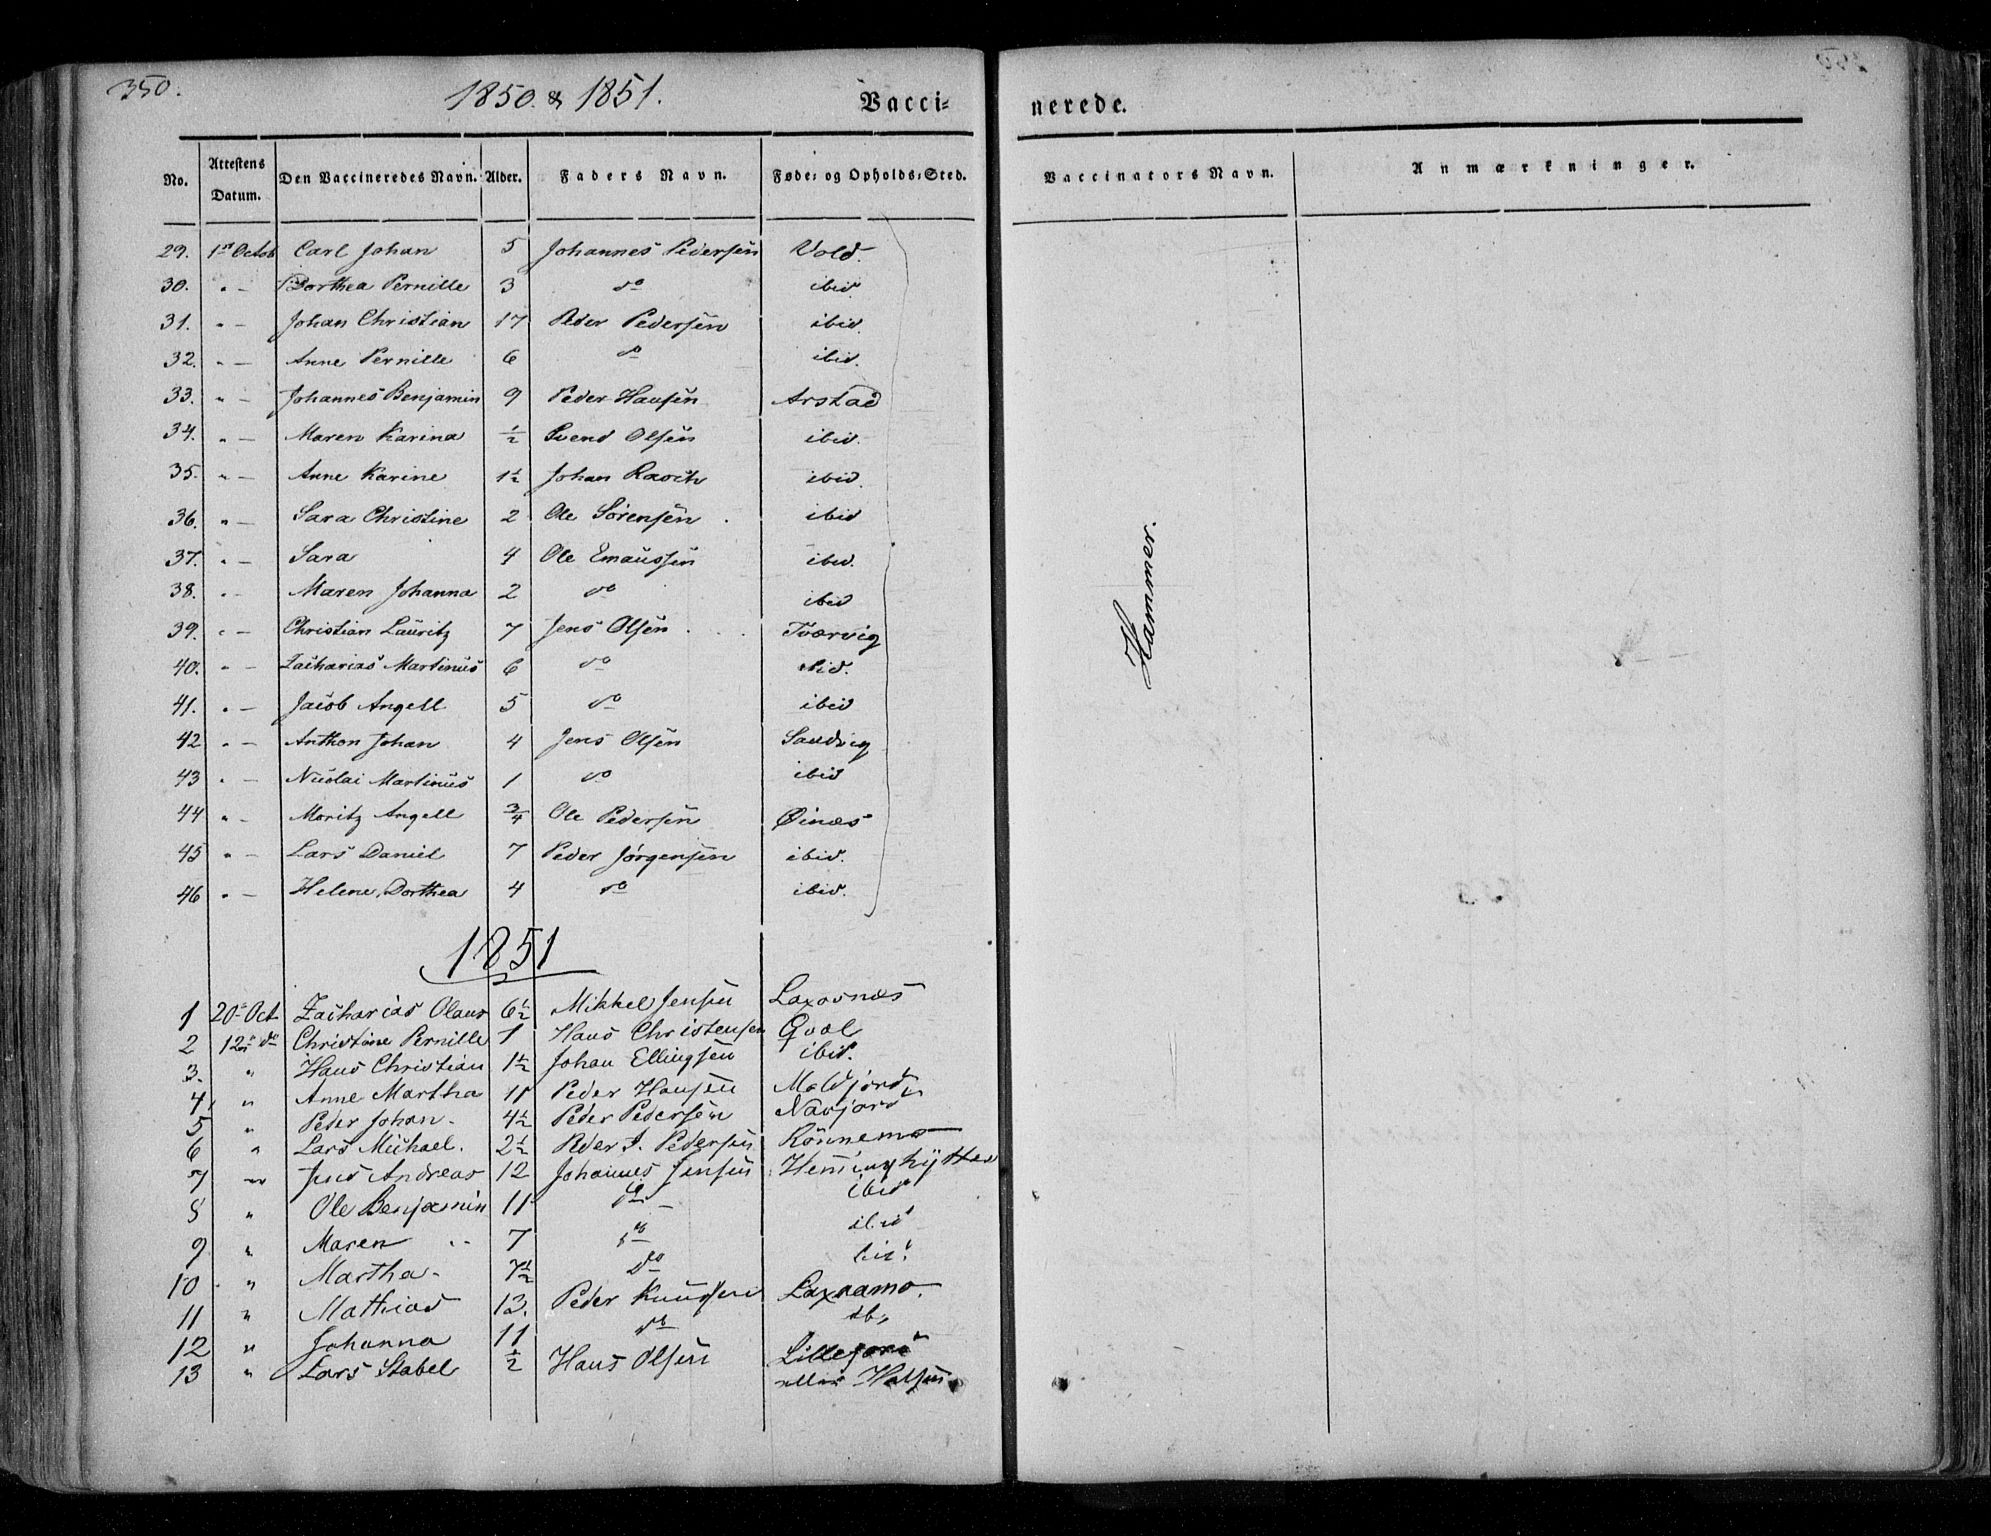 350.
1850. & 1851.
Vacci= nerede.
No. Attestens Datum. Den Vaccineredes Navn. Alder. Faders Navn. Føde= og Opholds=Sted. Vaccinators Navn. Anmærkninger.
29. 1ste Octob Carl Johan 5 Johannes Pedersen Vold.
30. " — Dorthea Pernille 3 do ibid.
31. " — Johan Christian 17 Peder Pedersen ibid.
32. " — Anne Pernille 6 do ibid.
33. " — Johannes Benjamin 9 Peder Hansen Arstad
34. " — Maren Karina ½ Svend Olsen ibid.
35. " — Anne Karine 1½ Johan Rasch ibid.
36. " — Sara Christine 2 Ole Sörensen ibid
37. " — Sara 4 Ole Emaussen ibid.
38. " — Maren Johanna 2 do ibid
39. " — Christian Lauritz 7 Jens Olsen Tværvig
40. " — Zacharias Martinus 6 do ibid.
41. " — Jacob Angell 5 do ibid
42 " — Anthon Johan 4 Jens Olsen Sandvig
43 " — Nicolai Martinus 1 do ibid
44 " — Moritz Angell ¾ Ole Pedersen Øinæs
45 " — Lars Daniel 7 Peder Jørgensen ibid.
46 " — Helene Dorthea 4 do ibid.
Hammer.
1851
1 20de Oct. Zacharias Olaus 6½ Mikkel Jensen Laxosnæs
2 12te do Christine Pernille 1 Hans Christensen Qval
3. " Hans Christian 1½ Johan Ellingsen ibid.
4, " Anne Martha 11 Peder Hansen Maldjord
5 " Peder Johan. 4½ Peder Pedersen Navjord
6 " Lars Michael. 2½ Peder Pedersen Rönnemo
7 " Jens Andreas 12 Johannes Jensen Heminghytten
8 " Ole Benjamin 11 do ibid
9 " Maren 7 do ibid
10 " Martha 7½ do ibid.
11 " Mathias 13. Peder Knudsen Laxaamo.
12 " Johanna 11 do ib.
13 " Lars Stabel ½ Hans Olsen Lillejord
eller Halsen